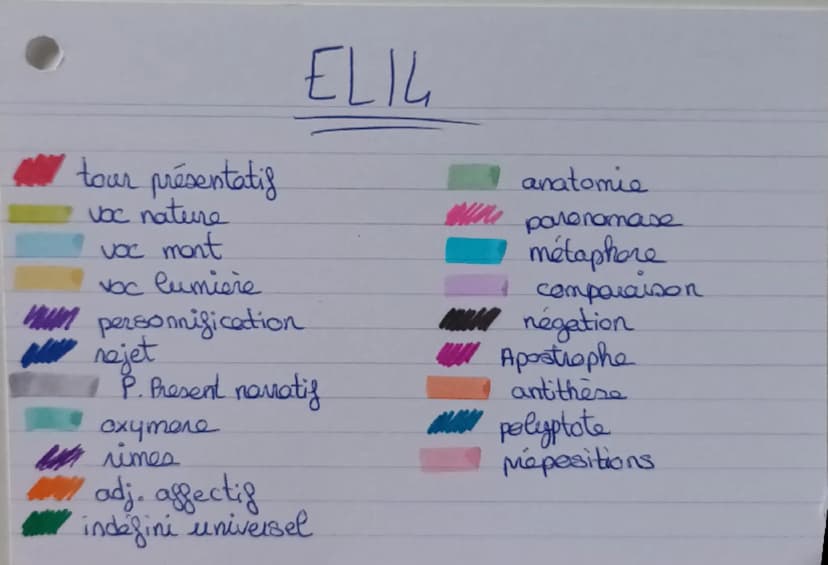 EL14
tour présentatif
voc nature
voc mort
voc lumière
personnification
rejet
P. Présent narratif
oxymore
rimes
adj. affectif
indéfini universel
anatomie
paronomase
métaphore
comparaison
négation
Apostrophe
antithèse
polyptote
prépositions